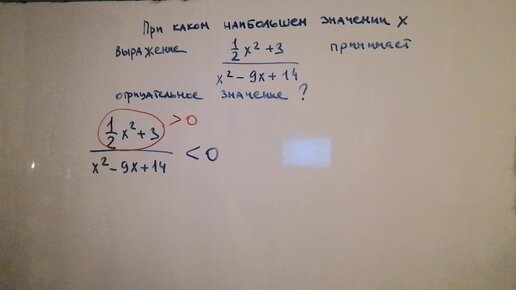 При каком наибольшем значении x
выражение (1/2 x² + 3)/(x² - 9x + 14) принимает
отрицательное значение ?
(1/2 x² + 3)/(x² - 9x + 14) < 0
> 0